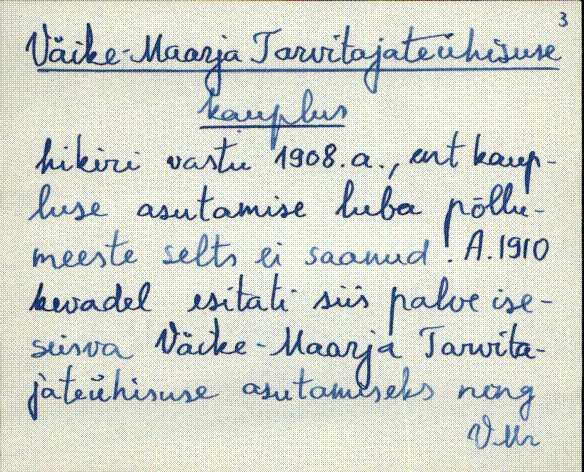 3
Väike-Maarja Tarvitajateühisuse
kauplus
hikiri vastu 1908.a., ent kaup-
luse asutamise luba põllu-
meeste selts ei saanud. A.1910
kevadel esitati siis palve ise-
seisva Väike-Maarja Tarvita-
jateühisuse asutamiseks ning